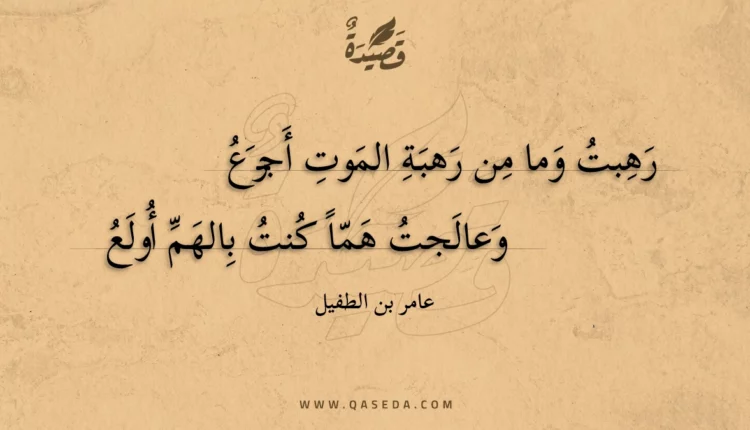 قَصِيدَةٌ
رَهِبتُ وَما مِن رَهبَةِ المَوتِ أَجزَعُ
وَعالَجتُ هَمّاً كُنتُ بِالهَمِّ أُولَعُ
عامر بن الطفيل
WWW.QASEDA.COM